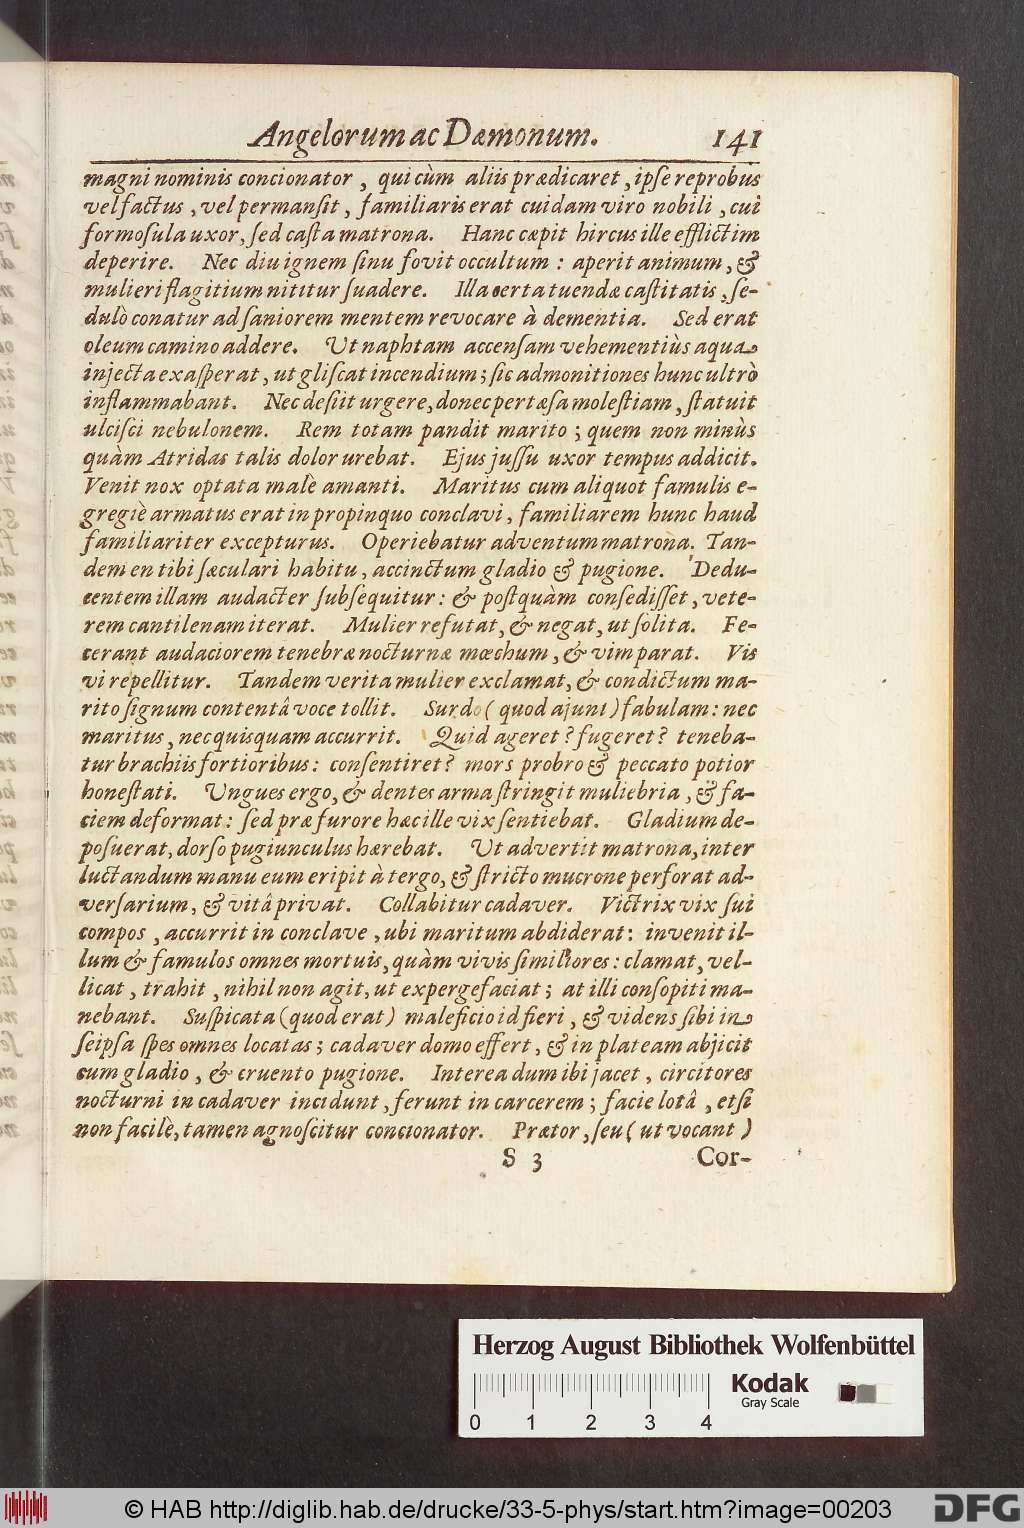 Angelorum ac Dæmonum. 141
magni nominis concionator, qui cùm aliis prædicaret, ipſe reprobus
vel factus, vel permanſit, familiaris erat cuidam viro nobili, cui
formoſula uxor, ſed caſta matrona. Hanc cæpit hircus ille efflictim
deperire. Nec diu ignem ſinu fovit occultum: aperit animum, &
mulieri flagitium nititur ſuadere. Illa certa tuendæ caſtitatis, ſe-
dulò conatur ad ſaniorem mentem revocare à dementia. Sed erat
oleum camino addere. Ut naphtam accenſam vehementiùs aqua
injecta exaſperat, ut gliſcat incendium; ſic admonitiones hunc ultrò
inflammabant. Nec deſiit urgere, donec pertæſa moleſtiam, ſtatuit
ulciſci nebulonem. Rem totam pandit marito; quem non minùs
quàm Atridas talis dolor urebat. Ejus juſſu uxor tempus addicit.
Venit nox optata malè amanti. Maritus cum aliquot famulis e-
gregiè armatus erat in propinquo conclavi, familiarem hunc haud
familiariter excepturus. Operiebatur adventum matrona. Tan-
dem en tibi ſæculari habitu, accinctum gladio & pugione. Dedu-
centem illam audacter ſubſequitur: & poſtquàm conſediſſet, vete-
rem cantilenam iterat. Mulier refutat, & negat, ut ſolita. Fe-
cerant audaciorem tenebræ nocturnæ mœchum, & vim parat. Vis
vi repellitur. Tandem verita mulier exclamat, & condictum ma-
rito ſignum contentâ voce tollit. Surdo (quod ajunt) fabulam: nec
maritus, nec quisquam accurrit. Quid ageret? fugeret? teneba-
tur brachiis fortioribus: conſentiret? mors probro & peccato potior
honeſtati. Ungues ergo, & dentes arma ſtringit muliebria, & fa-
ciem deformat: ſed præ furore hæc ille vix ſentiebat. Gladium de-
poſuerat, dorſo pugiunculus hærebat. Ut advertit matrona, inter
luctandum manu eum eripit à tergo, & ſtricto mucrone perforat ad-
verſarium, & vitâ privat. Collabitur cadaver. Victrix vix ſui
compos, accurrit in conclave, ubi maritum abdiderat: invenit il-
lum & famulos omnes mortuis, quàm vivis ſimiliores: clamat, vel-
licat, trahit, nihil non agit, ut expergefaciat; at illi conſopiti ma-
nebant. Suſpicata (quod erat) maleficio id fieri, & videns ſibi in
ſeipſa ſpes omnes locatas; cadaver domo effert, & in plateam abjicit
cum gladio, & cruento pugione. Interea dum ibi jacet, circitores
nocturni in cadaver incidunt, ferunt in carcerem; facie lotâ, etſi
non facilè, tamen agnoſcitur concionator. Prætor, ſeu (ut vocant)
S 3 Cor-
Herzog August Bibliothek Wolfenbüttel
Kodak
Gray Scale
0 1 2 3 4
© HAB http://diglib.hab.de/drucke/33-5-phys/start.htm?image=00203
DFG